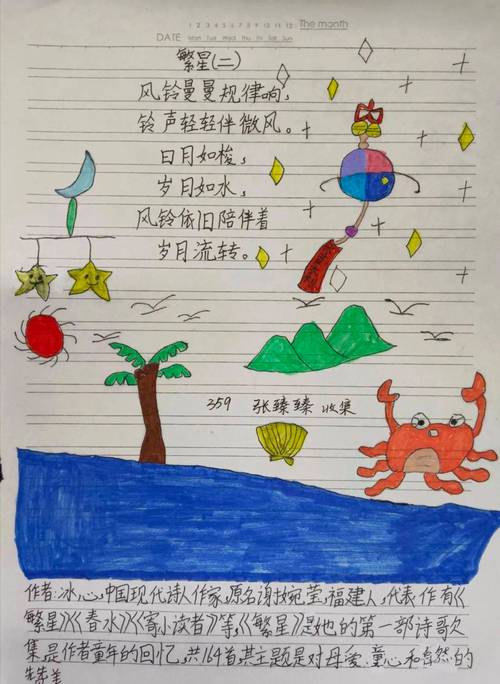 1 2 3 4 5 6 7 8 9 10 11 12 The month
DATE Mon Tue Wed Thu Fri Sat Sun
繁星(二)
风铃曼曼规律响,
铃声轻轻伴微风。
日月如梭,
岁月如水,
风铃依旧陪伴着
岁月流转。
359 张臻臻 收集
作者:冰心,中国现代诗人作家,原名谢婉莹,福建人,代表作有《
繁星》《春水》《寄小读者》等,《繁星》是她的第一部诗歌
集,是作者童年的回忆,共164首,其主题是对母爱、童心和自然的